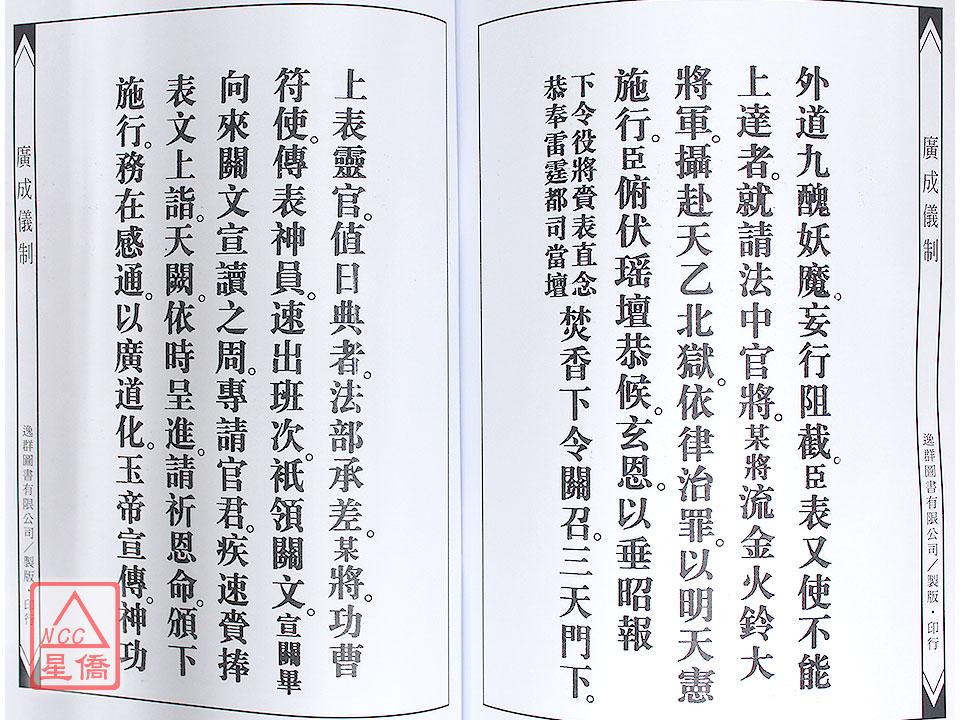 廣成儀制
逸群圖書有限公司／製版・印行
外道九醜妖魔。妄行阻截。臣表又使不能
上達者。就請法中官將。某將流金火鈴大
將軍。攝赴天乙北獄。依律治罪。以明天憲
施行。臣俯伏瑶壇恭候。玄恩。以垂昭報
下令役將賫表直念
恭奉雷霆都司當壇
焚香下令關召。三天門下。
上表靈官。值日典者。法部承差。某將。功曹
符使。傳表神員。速出班次。祇領關文。宣關畢
向來關文宣讀之周。專請官君。疾速賫捧
表文上詣。天闕。依時呈進。請祈恩命。頒下
施行。務在感通。以廣道化。玉帝宣傳。神功
廣成儀制
逸群圖書有限公司／製版・印行
NCC
星僑